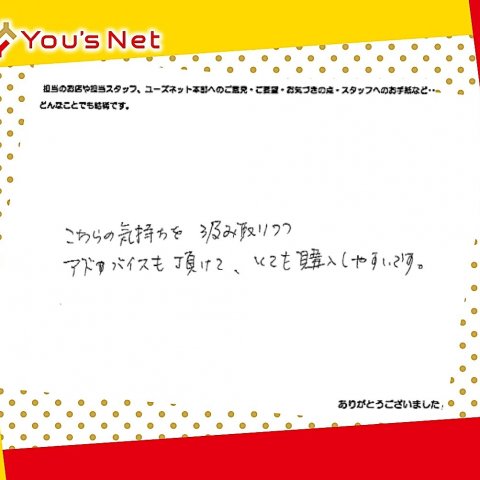 You's Net
担当のお店や担当スタッフ、ユーズネット本部へのご意見・ご要望・お気づきの点・スタッフへのお手紙など…
どんなことでも結構です。
こちらの気持ちを 汲み取りつつ
アドバイスも頂けて、とても購入しやすいです。
ありがとうございました